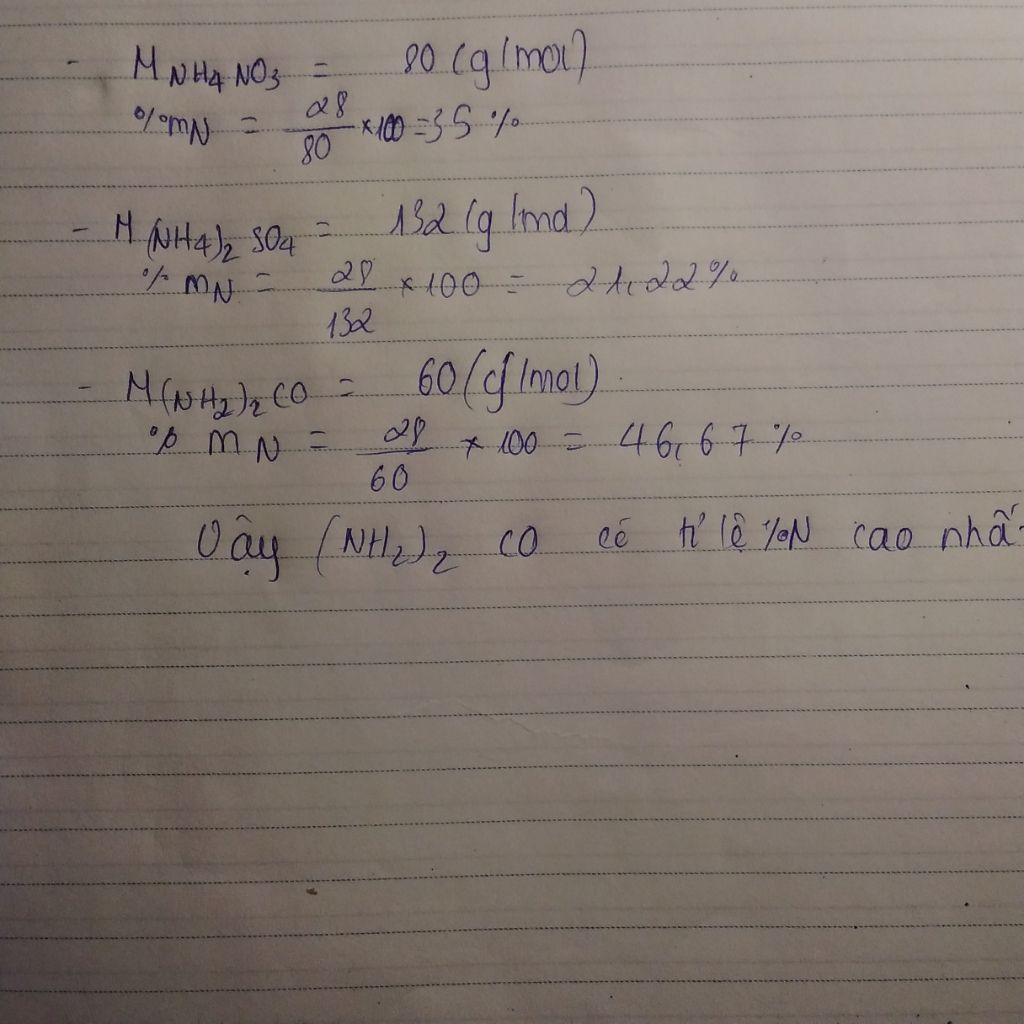 - M NH4 NO3 = 80 (g/mol)
%mN = 28/80 ×100 = 35 %
- M (NH4)2 SO4 = 132 (g/mol)
% mN = 28/132 × 100 = 21,22%
- M (NH2)2 CO = 60 (g/mol)
% mN = 28/60 × 100 = 46,67 %
Vậy (NH2)2 CO có tỉ lệ %N cao nhất